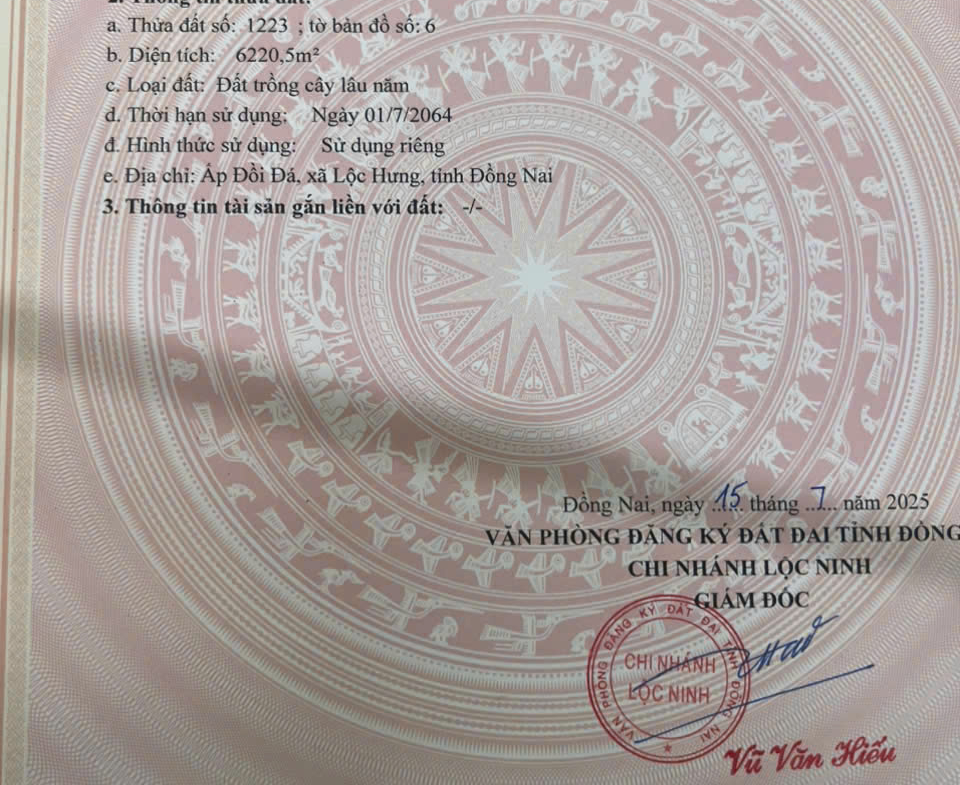 2. Thông tin thửa đất:
a. Thửa đất số: 1223 ; tờ bản đồ số: 6
b. Diện tích: 6220,5m²
c. Loại đất: Đất trồng cây lâu năm
d. Thời hạn sử dụng: Ngày 01/7/2064
đ. Hình thức sử dụng: Sử dụng riêng
e. Địa chỉ: Ấp Đồi Đá, xã Lộc Hưng, tỉnh Đồng Nai
3. Thông tin tài sản gắn liền với đất: -/-
Đồng Nai, ngày 15 tháng 7 năm 2025
VĂN PHÒNG ĐĂNG KÝ ĐẤT ĐAI TỈNH ĐỒNG
CHI NHÁNH LỘC NINH
GIÁM ĐỐC
VĂN PHÒNG ĐĂNG KÝ ĐẤT ĐAI TỈNH ĐỒNG NAI
CHI NHÁNH
LỘC NINH
Vũ Văn Hiếu